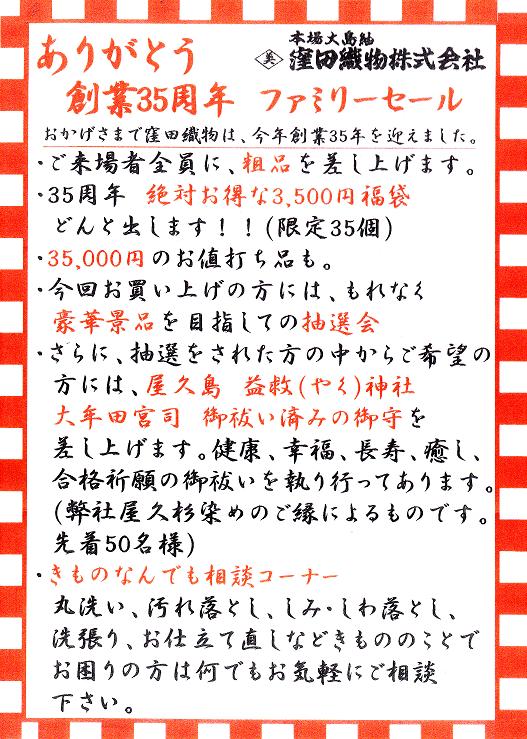 ありがとう
本場大島紬
美 窪田織物株式会社
創業35周年 ファミリーセール
おかげさまで窪田織物は、今年創業35年を迎えました。
・ご来場者全員に、粗品を差し上げます。
・35周年 絶対お得な3,500円福袋
どんと出します！！(限定35個)
・35,000円のお値打ち品も。
・今回お買い上げの方には、もれなく
豪華景品を目指しての抽選会
・さらに、抽選をされた方の中からご希望の
方には、屋久島 益救(やく)神社
大牟田宮司 御祓い済みの御守を
差し上げます。健康、幸福、長寿、癒し、
合格祈願の御祓いを執り行ってあります。
(弊社屋久杉染めのご縁によるものです。
先着50名様)
・きものなんでも相談コーナー
丸洗い、汚れ落とし、しみ・しわ落とし、
洗張り、お仕立て直しなどきもののことで
お困りの方は何でもお気軽にご相談
下さい。